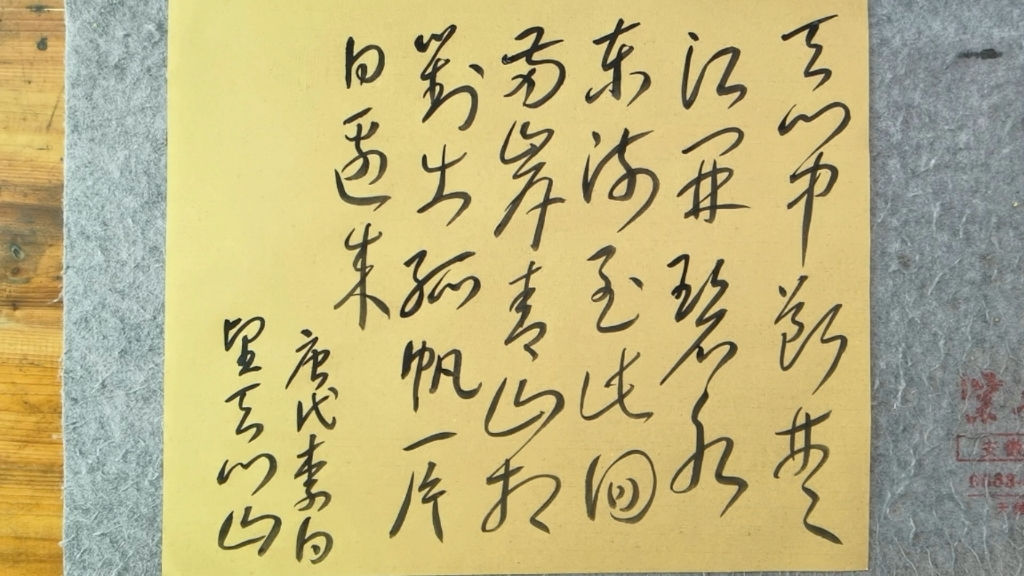 天门中断楚
江開碧水
东流至此回
两岸青山相
對出孤帆一片
日邊来
唐代李白
望天门山